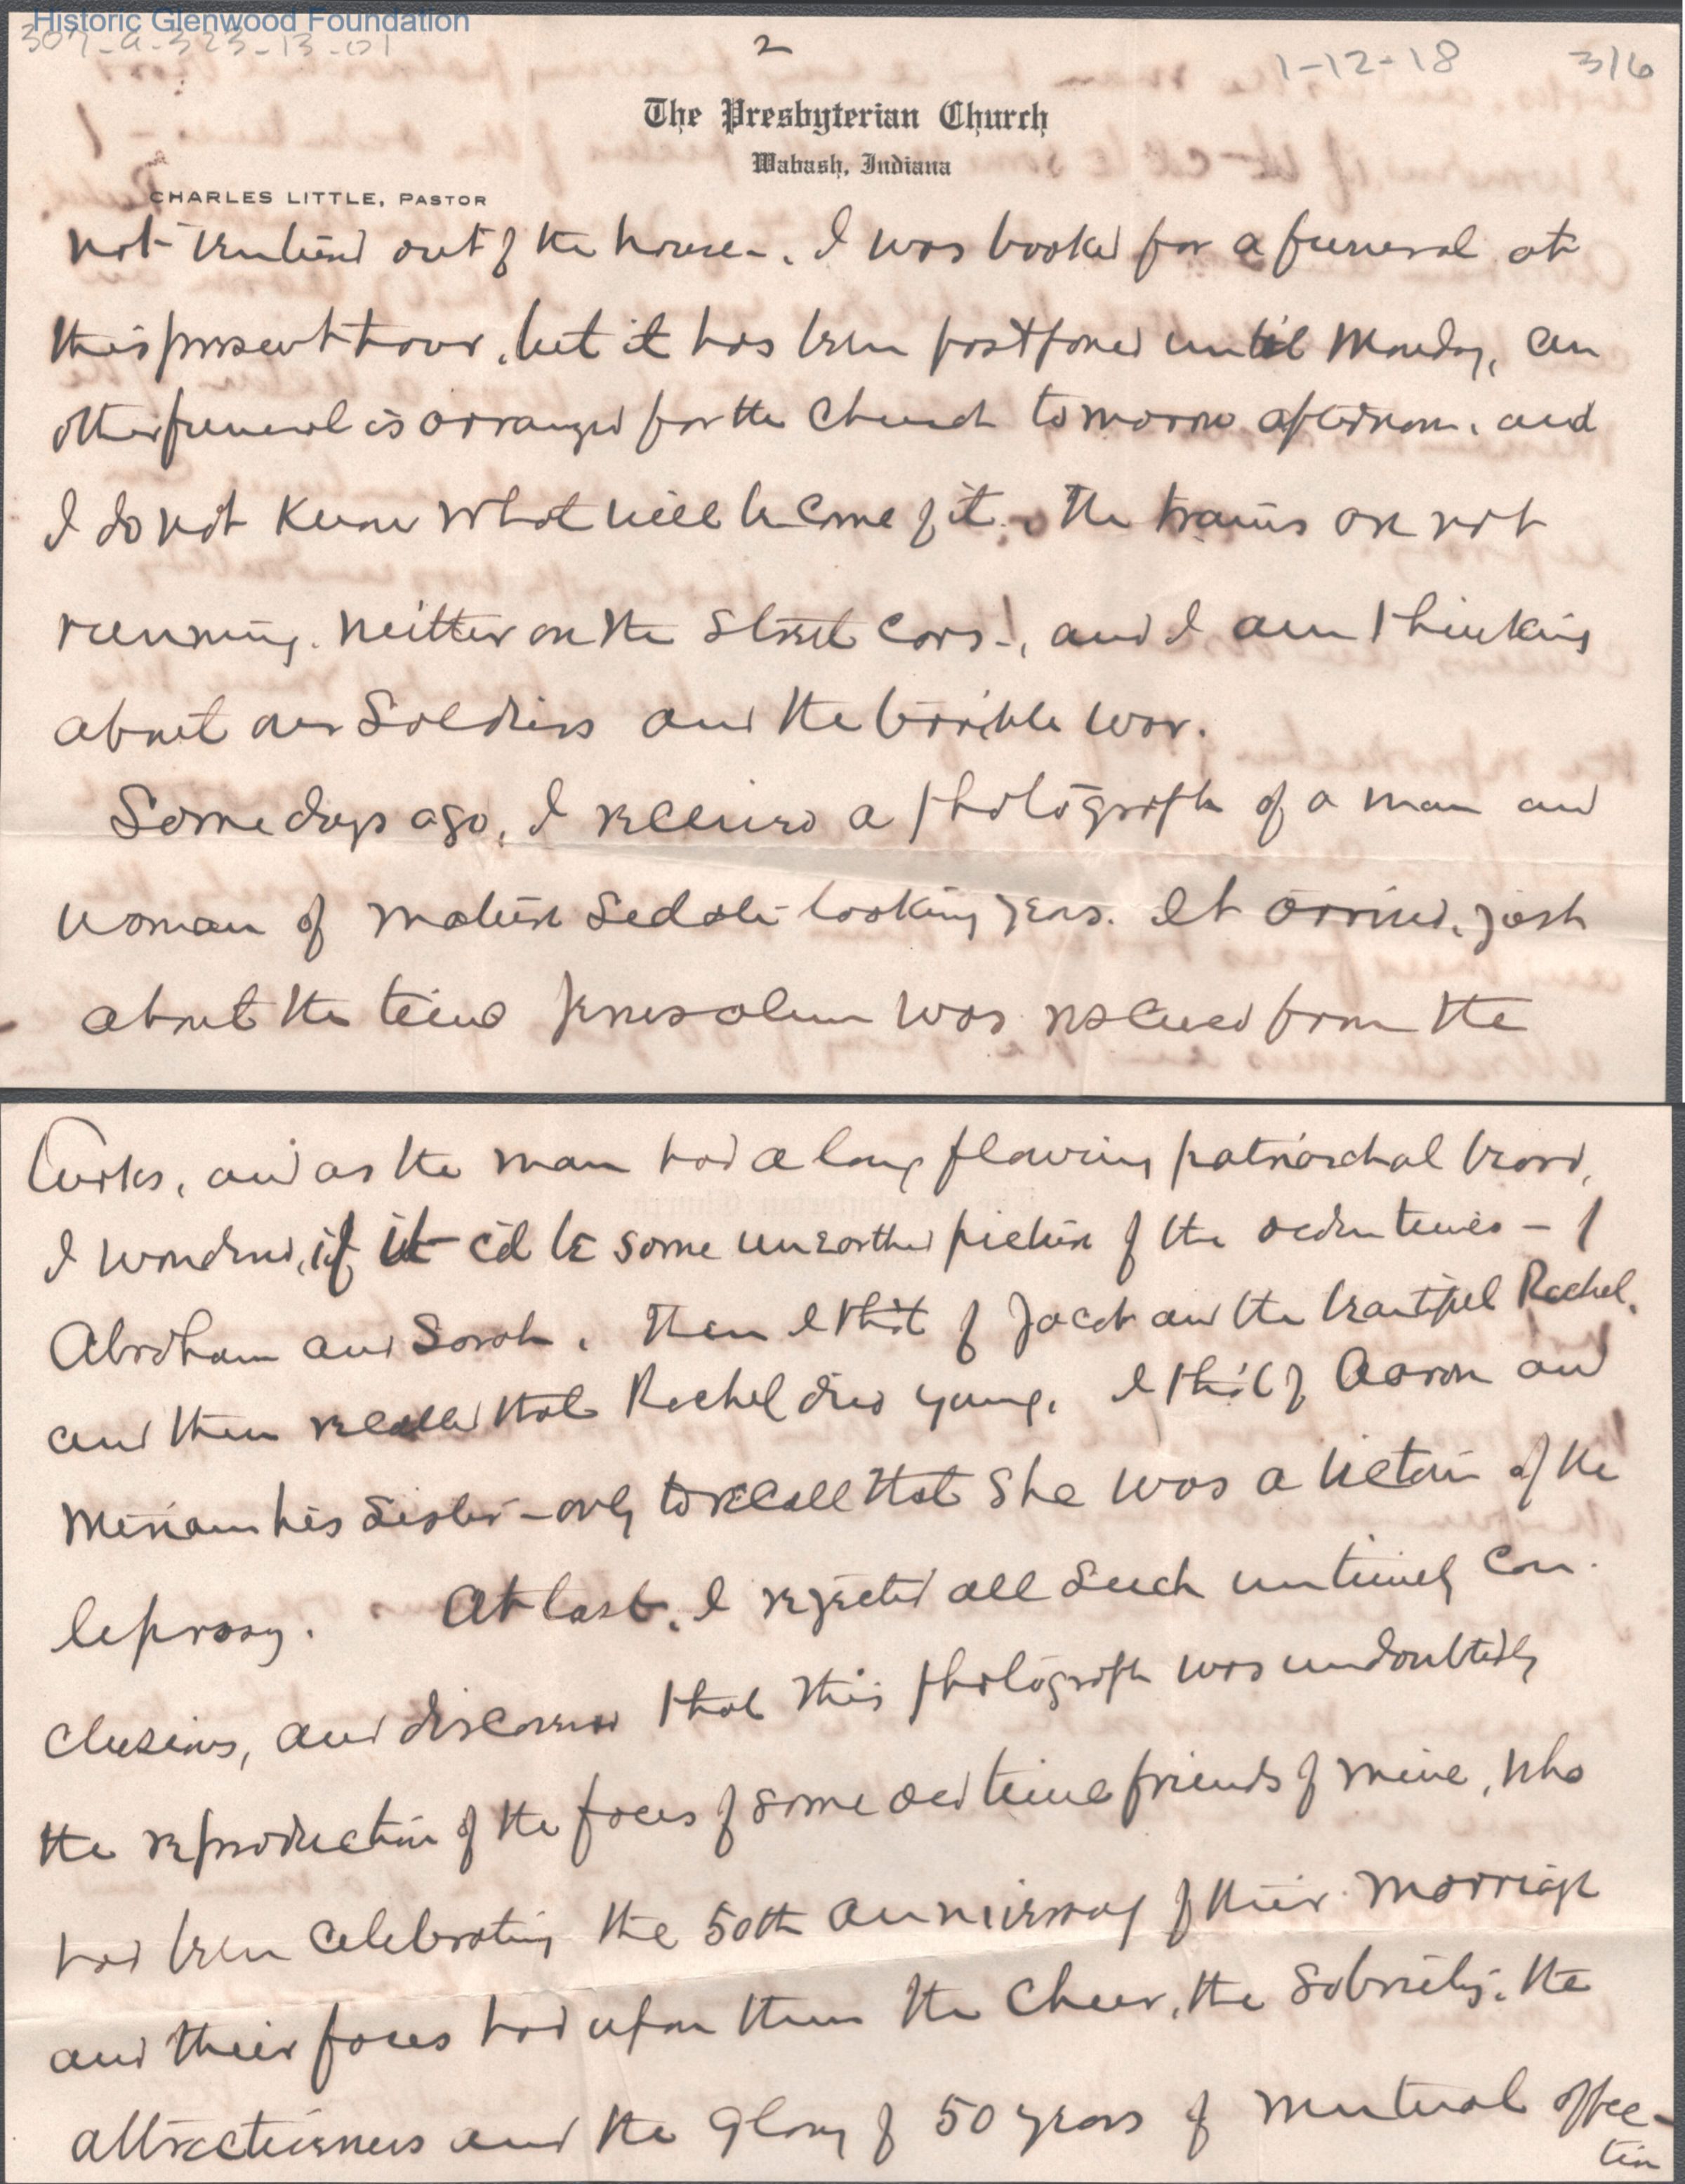 Historic Glenwood Foundation
307-a-323-13-01
2
1-12-18
316
The Presbyterian Church
Wabash, Indiana
CHARLES LITTLE, PASTOR
not ventured out of the house-. I was booked for a funeral at
this present hour, but it has been postponed until Monday, an
other funeral is arranged for the Church tomorrow afternoon, and
I do not know what will become of it. The trains are not
running. Neither are the street cars-, and I am thinking
about our Soldiers and the terrible war.
Some days ago, I received a photograph of a man and
woman of mature sedate-looking years. It arrived, just
about the time Jerusalem was rescued from the
Turks, and as the man had a long flowing patriarchal beard,
I wondered, if it c'd be some unearthed picture of the olden times - of
Abraham and Sarah. Then I tho't of Jacob and the beautiful Rachel,
and then recalled that Rachel died young. I tho't of Aaron and
Miriam his sister - only to recall that she was a victim of the
leprosy. At last, I rejected all such untimely con-
clusions, and discovered that this photograph was undoubtedly
the reproduction of the faces of some old time friends of mine, who
had been celebrating the 50th anniversary of their marriage
and their faces had upon them the cheer, the sobriety, the
attractiveness and the glory of 50 years of mutual affec-
tion